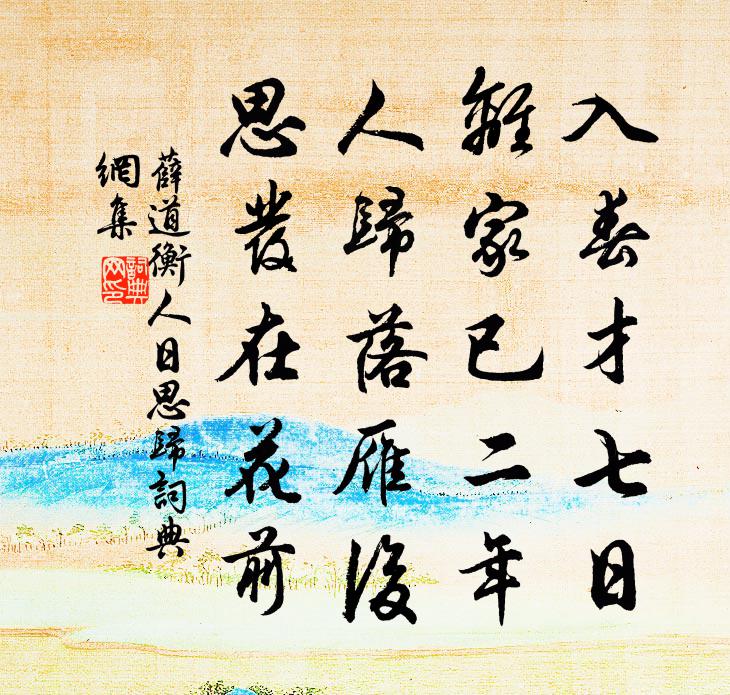 入春才七日
離家已二年
人歸落雁後
思發在花前
薛道衡人日思歸詞典
網集
詞典
网印